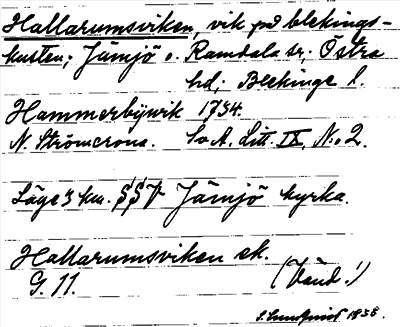 Hallarumsviken, vik på blekings-
kusten; Jämjö o. Ramdala sr; Östra
hd; Blekinge l.
Hammerbÿwik 1734.
N. Strömcrona. SvA. Litt. IX, No 2.
Läge 3 km. SSV Jämjö kyrka.
Hallarumsviken ek.
G. 11. (Vänd!)
S. Lundqvist 1938.